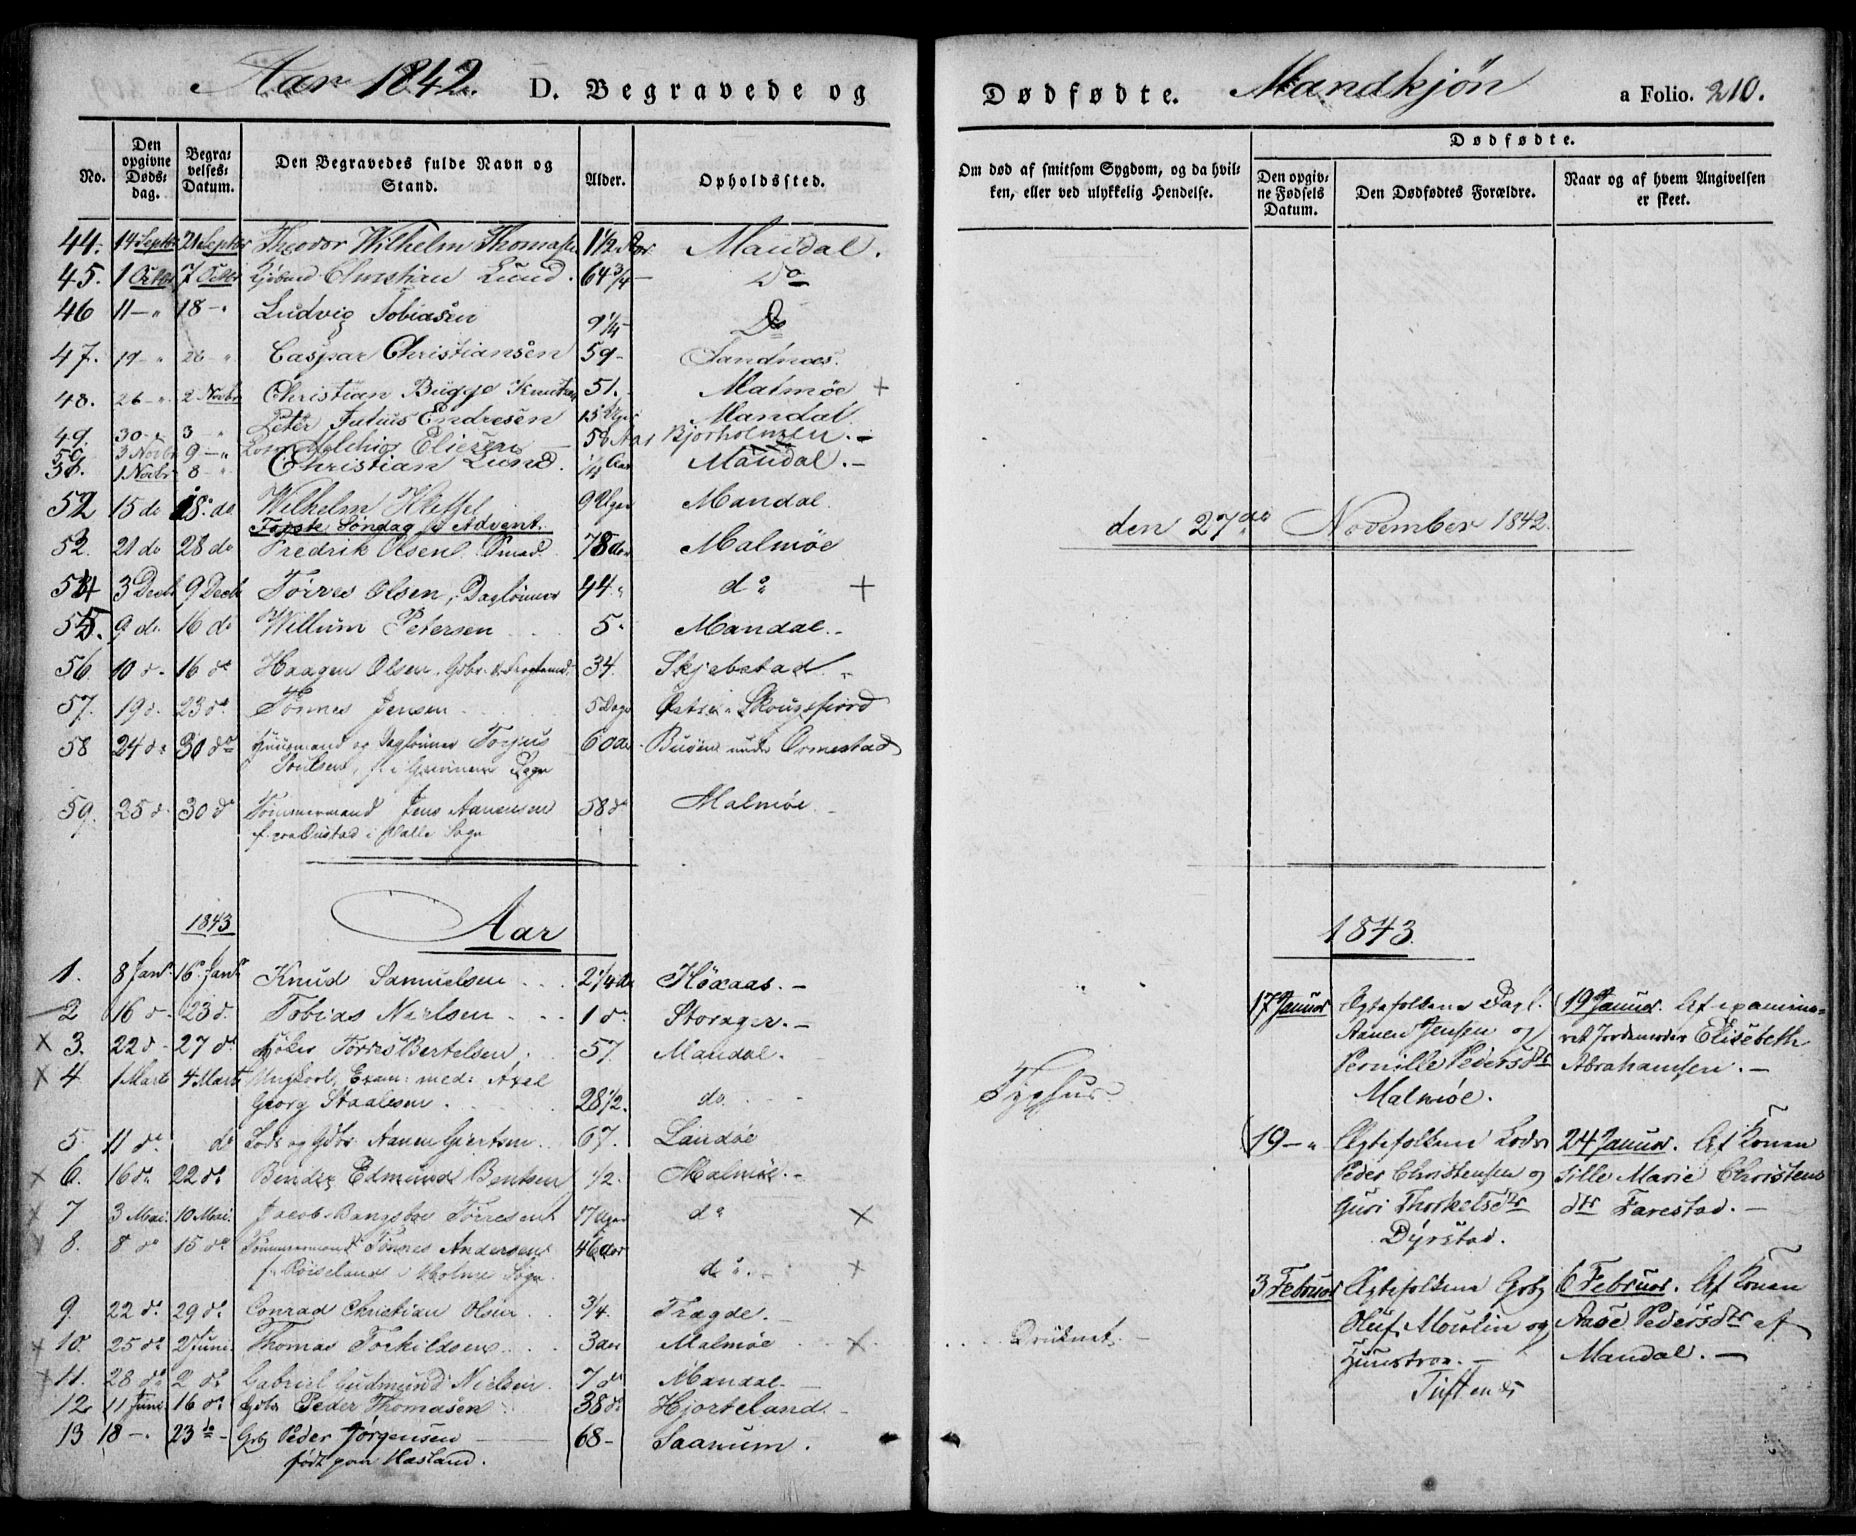 Aar 1842. D. Begravede og
Dødfødte. Mandkjøn a Folio. 210.
No. | Den opgivne Dødsdag. | Begravelses-Datum. | Den Begravedes fulde Navn og Stand. | Alder. | Opholdssted.
44. 14 Septbr 21 Septbr Theodor Wilhelm Thomas 1 1/2 Aar Mandal.
45. 1 Octbr 7 Octbr Christian Lund. 64 3/4 — Do
46 11 — " 18 — " Ludvig Tobiasen 9 1/4 — Do
47. 19 — " 26 " Caspar Christiansen 59 - Sandnæs.
48. 26 — " 2 Novbr Christian Bugge Knutsen 51. - Malmøe +
49. 30 — " 3 — " Peter Julius Endresen 15 Uger Mandal.
50. 3 Novbr 9 — " Melchior Eliesen 58 Aar Bjorholmen. -
51. 1 Novbr 8 — " Christian Lund. 1/4 Aar Mandal. -
52 15 do 18. do Wilhelm 9 Uger Mandal.
Første Søndag i Advent. den 27de November 1842.
53. 21 do 28 do Fredrik Olsen Smed 78 aar Malmøe
54 3 Decbr 9 Decbr Tørres Olsen, Daglønner 44. " do +
55. 9 do 16 do Willum Petersen 5. Mandal.
56. 10 d. 16 do Haagen Olsen, Gdbr. 34. Skjebstad.
57. 19 d. 23 do Tønnes Jensen 5 Dage Østre Skougsfjord
58 24 do 30 do Huusmand og Daglønner Torjus 60 aar Buøen under Ormestad
Poulsen, f. i Sogn
59. 25 d. 30 do Tømmermand Jens Aanensen 58 do Malmøe
f. paa i Valle Sogn
1843 Aar
1843.
1. 8 Janr. 16. Janr. Knud Samuelsen 2 1/4 Aar Høxaas. -
2 16 d. 23 d. Tobias Nielsen 1 do Storager. -
× 3. 22 d. 27 do Høker Torres Bertelsen 57. Mandal.
× 4. 1 Marts 4 Marts Ungkarl, Exam: med: Axel
Georg Staalesen. 28 1/2. do Typhus.
5. 11 do do Lods og Gdbr. Aanen Giertsen 67. Landøe
× 6. 16 do 22 do Bendix Edmund Bentsen 1/2. Malmøe. -
× 7 3 Mai. 10 Mai. Jacob Bangsboe Tørresen 17 Uger do ×
× 8. 8 do 15 do Tømmermand Tønnes Andersen 46 aar
f. Røiseland i Holme Sogn. do. - ×
9. 22 do. 29 do. Conrad Christian Olsen 3/4. Tragde. -
× 10. 25 do 2 Juni. Thomas Torkildsen 3 aar Malmøe × Druknet. -
× 11. 28 do 2 do Gabriel Gudmund Nielsen. 7 do Mandal. -
12. 11 Juni 16 do Gdbr Peder Thomasen 38 do Hjorteland -
13 18 - 23 do - Grbr Peder Jørgensen 68 - Saanum.
født paa Hasland.
Om død af smitsom Sygdom, og da hvilken, eller ved ulykkelig Hendelse.
Dødfødte.
Den opgivne Fødsels Datum. | Den Dødfødtes Forældre. | Naar og af hvem Angivelsen er skeet.
17 Januar Ægtefolkene Dagl. 19 Januar. Af examine-
Aanen Jensen og ret Jordemoder Elisebeth
Pernille Pedersdtr Abrahamsen. -
Malmøe.
19 — " Ægtefolkene Lods 24 Januar. Af Konen
Peder Christensen og Sille Marie Christens
Guri Thorkelsdtr dtr Farestad. -
Dyrstad.
3 Februar Ægtefolkene Grbr 6 Februar. Af Konen
Oluf og Aase Pedersdtr af
Hunstroe. - Mandal. -
Tuftenes